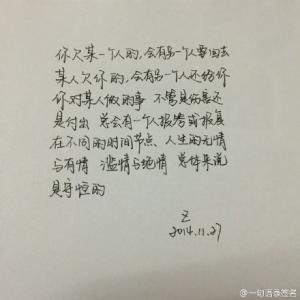 你欠某一个人的,会有另一个人要回去
某人欠你的,会有另一个人还给你
你对某人做的事 不管是伤害还
是付出 总会有一个人报答或报复
在不同的时间节点、人生的无情
与有情 滥情与绝情 总体来说
是守恒的
Z
2014.11.27
@一句话录签名